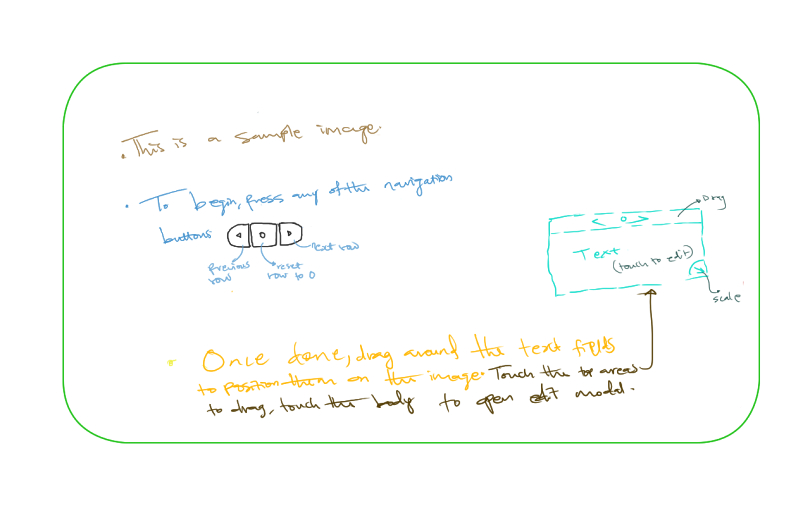 • This is a sample image.
• To begin, press any of the navigation
buttons
Previous row
reset row to 0
Next row
Drag
Text
(touch to edit)
scale
Once done, drag around the text fields
to position them on the image. Touch the top areas
to drag, touch the body to open edit modal.